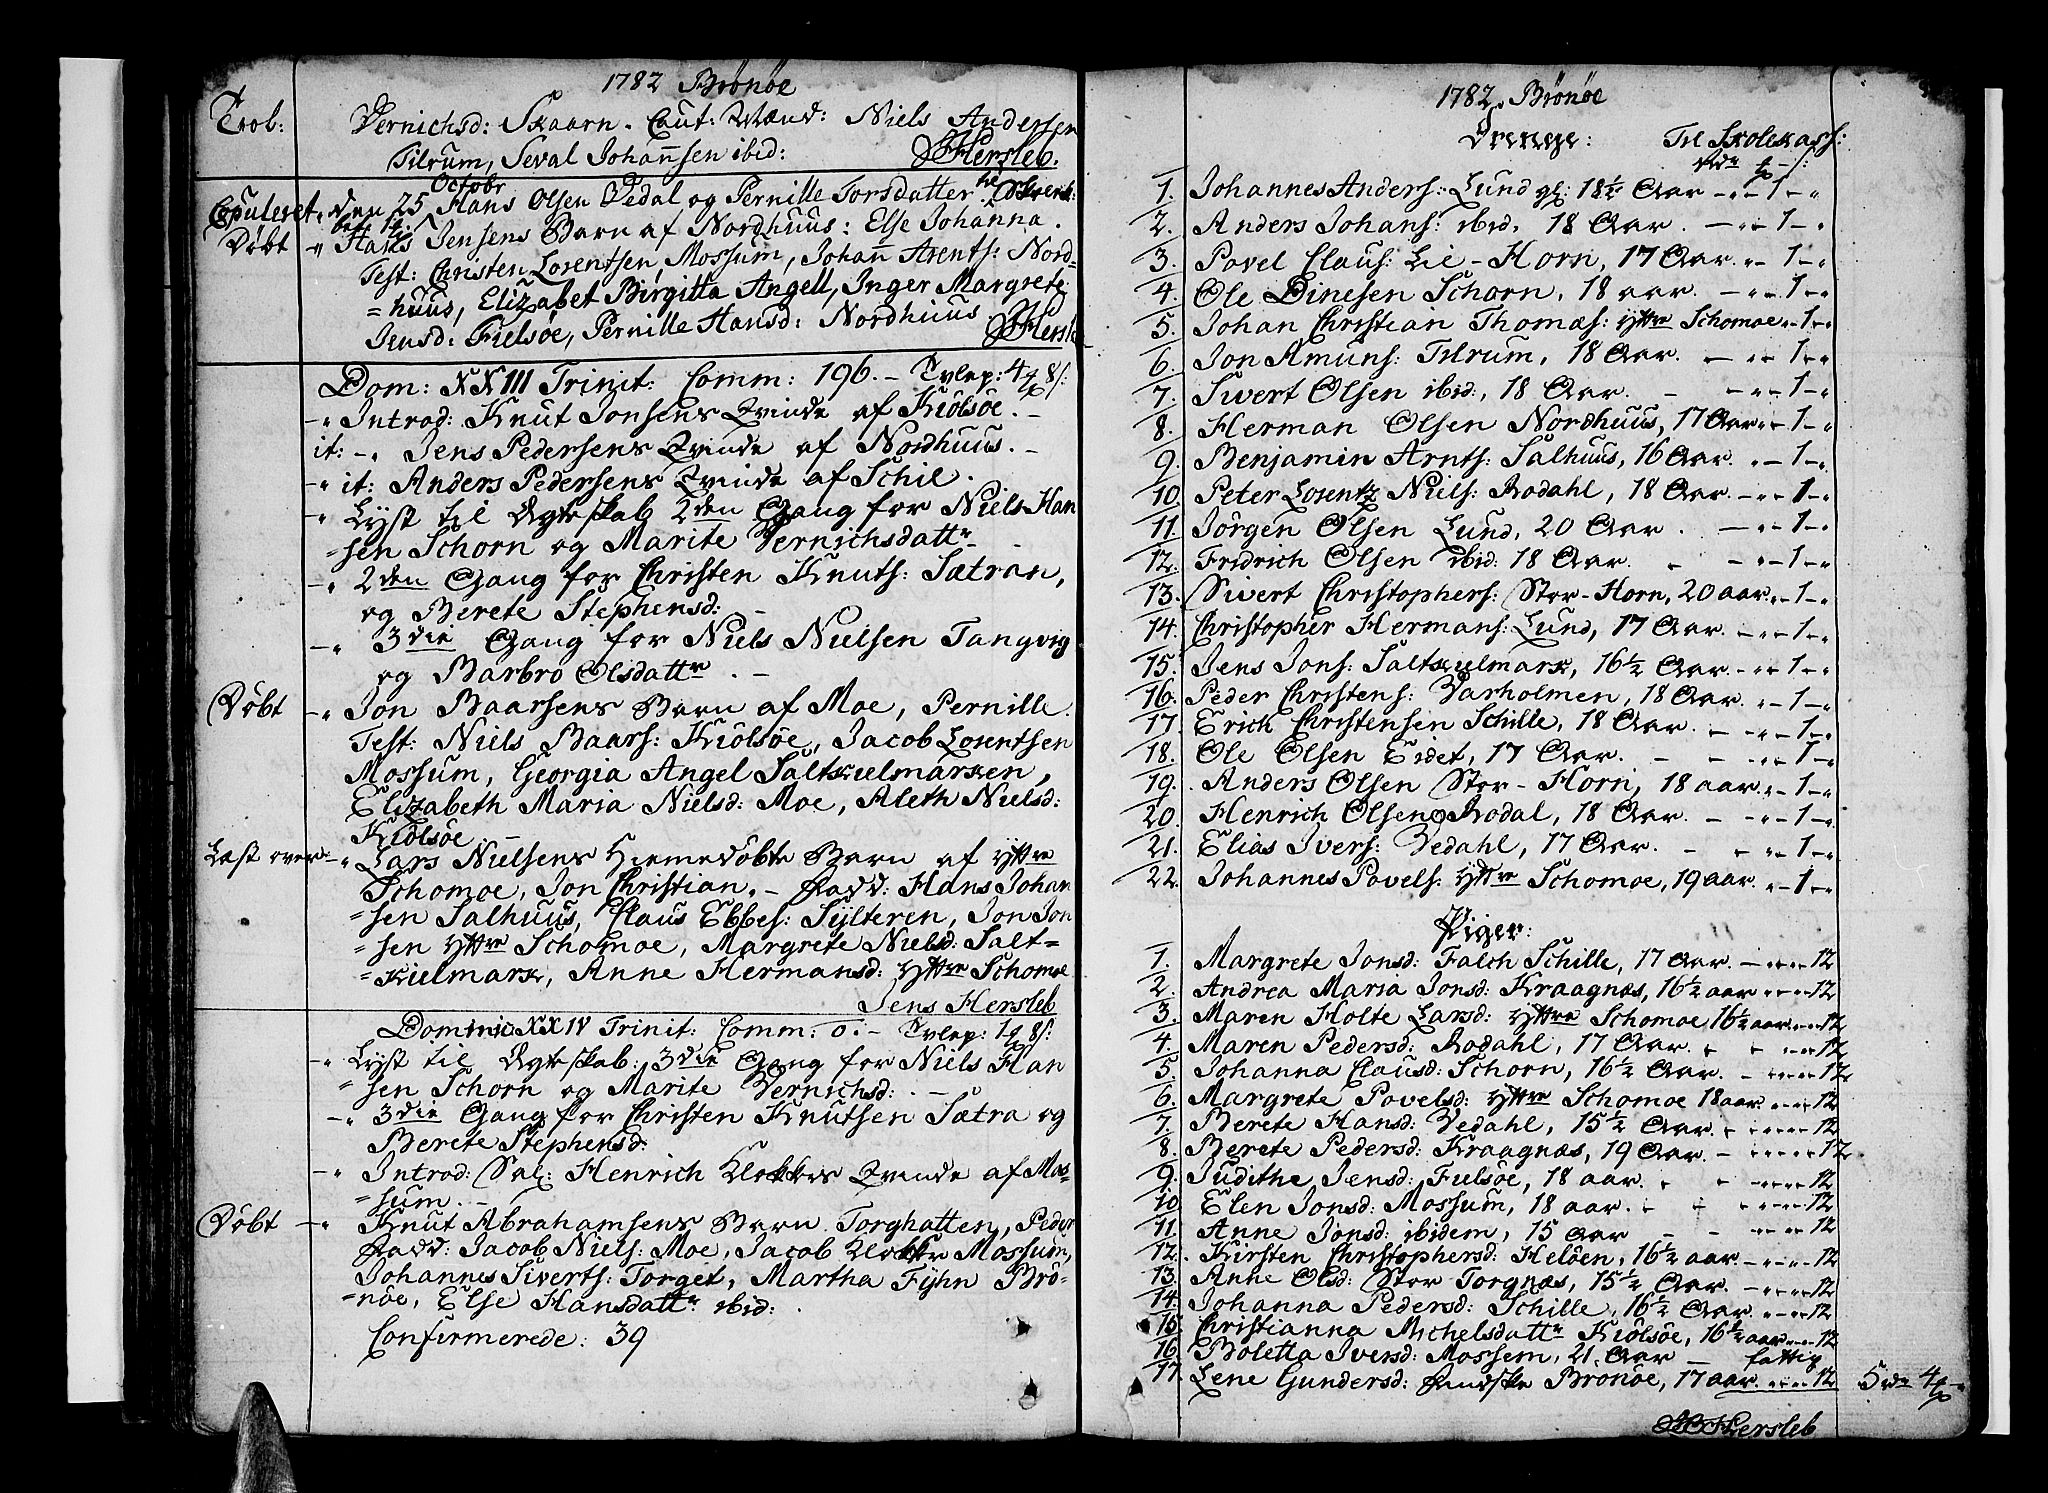 1782 Brönöe
Trol: Vernichsd: Skaarn. Caut: Mænd: Niels Andersen
Tilrum, Seval Johansen ibid: Hersleb.
Copuleret, den 25 Octobr Hans Olsen Vedal og Pernille Torsdatter
Döbt -" Hans Jensens Barn af Nordhuus: Else Johanna.
Test: Christen Lorentsen Mossum, Johan Arents: Nord=
=huus, Elizabet Birgitta Angell, Inger Margrete
Jensd: Fielsöe, Pernille Hansd: Nordhuus. Hersleb
Dom: XXIII Trinit: Comm: 196. - Tvlep: 4 8 s:
-" Introd: Knut Jonsens Qvinde af Kiölsöe. -
it: -" Jens Pedersens Qvinde af Nordhuus. -
-" it: Anders Pedersens Qvinde af Schil.
-" Lyst til Ægteskab 2den Gang for Niels Han
=sen Schorn og Marite Vernichsdattr -
-" 2den Gang for Christen Knuts: Sætran,
og Berete Stephensd: -
-" 3die Gang for Niels Nielsen Tangvig
og Barbro Olsdattr. -
Döbt -" Jon Baarsens Barn af Moe, Pernille.
Test: Niels Baars: Kiölsöe, Jacob Lorentsen
Mossum, Georgia Angel Saltkielmarken,
Elizabeth Maria Nielsd: Moe, Aleth Nielsd:
Kiölsöe. -
Læst over -" Lars Nielsens Hiemedöbte Barn af Yttre
Schomoe, Jon Christian. - Fadd: Hans Johan
=sen Salhuus, Claus Ebbes: Sylteren, Jon Jon
=sen Yttre Schomoe, Margrete Nielsd: Salt=
=kielmark, Anne Hermansd: Yttre Schomoe
Jens Hersleb
Dominic XXIV Trinit: Comm: 0. - Tvlep: 1 8 s:
-" Lyst til Ægteskab: 3die Gang for Niels Han
=sen Schorn og Marite Vernichsd: . -
-" 3die Gang for Christen Knutsen Sætra og
Berete Stephensd:
-" Introd: Sal: Henrich Klokkers Qvinde af Mos=
=sum. -
Döbt -" Knut Abrahamsens Barn Torghatten, Peder
Fadd: Jacob Niels: Moe, Jacob Klokker Mossum,
Johannes Siverts: Torget, Martha Fyhn Brö=
=nöe, Else Hansdattr ibid: .
Confirmerede: 39
1782. Brönöe
Drenge: Til Skolekass:
1. Johannes Anders: Lund gl: 18½ Aar -"-1-"
2. Anders Johans: ibid. 18 Aar. -"-1-"
3. Povel Claus: Lie-Horn, 17 Aar. "-1-"
4. Ole Dinesen Schorn, 18 aar. -"-1-"
5. Johan Christian Thomæs: Yttre Schomoe "-1-"
6. Jon Amuns: Tilrum, 18 Aar. -"-1-"
7. Sivert Olsen ibid:, 18 Aar. -"-1-"
8. Herman Olsen Nordhuus, 17 Aar "-1-"
9. Benjamin Arnts: Salhuus, 16 Aar. "-1-"
10. Peter Lorentz Niels: Rodahl, 18 Aar. -"-1-"
11. Jörgen Olsen Lund, 20 Aar. -"-1-"
12. Fridrich Olsen ibid: 18 Aar. -"-1-"
13. Sivert Christophers: Stor-Horn, 20 aar. "-1-"
14. Christopher Hermans: Lund, 17 Aar. -"-1-"
15. Jens Jons: Saltkielmark, 16½ Aar. -"-1-"
16. Peder Christens: Varholmen, 18 Aar. "-1-"
17. Erich Christensen Schille, 18 Aar. -"-1-"
18. Ole Olsen Eidet, 17 Aar. -"-1-"
19. Anders Olsen Stor-Horn, 18 aar. "-1-"
20. Henrich Olsen Rodal, 18 Aar. -"-1-"
21. Elias Ivers: Vedahl, 17 Aar. -"-1-"
22. Johannes Povels: Yttre Schomoe, 19 aar. "-1-"
Piger:
1. Margrete Jonsd: Falch Schille, 17 Aar. -"-"12
2. Andrea Maria Jonsd: Kraagnæs, 16½ aar "-"12
3. Maren Holte Larsd: Yttre Schomoe, 16½ aar "-"12
4. Maren Pedersd: Rodahl, 17 Aar. "-"12
5. Johanna Clausd: Schorn, 16½ Aar. -"-"12
6. Margrete Povelsd: Yttre Schomoe 18 aar "-"12
7. Berete Hansd: Vedahl, 15½ Aar. "-"12
8. Berete Pedersd: Kraagnæs, 19 Aar. -"-"12
9. Judithe Jensd: Fielsöe, 18 aar. "-"12
10 Elen Jonsd: Mossum, 18 aar. "-"12
11. Anne Jonsd: ibidem, 15 aar -"-"12
12. Kirsten Christophersd: Helöen, 16½ aar. "-"12
13. Anne Olsd: Stor Torgnæs, 15½ Aar. -"-"12
14. Johanna Pedersd: Schille, 16½ Aar. "-"12
15. Christianna Michelsdattr Kiölsöe, 16½ aar "-"12
16. Boletta Iversd: Mossem, 21. Aar - fattig
17. Lene Gundersd: Fandske Brönöe, 17 aar. "-"12 5 rdr 4
Hersleb